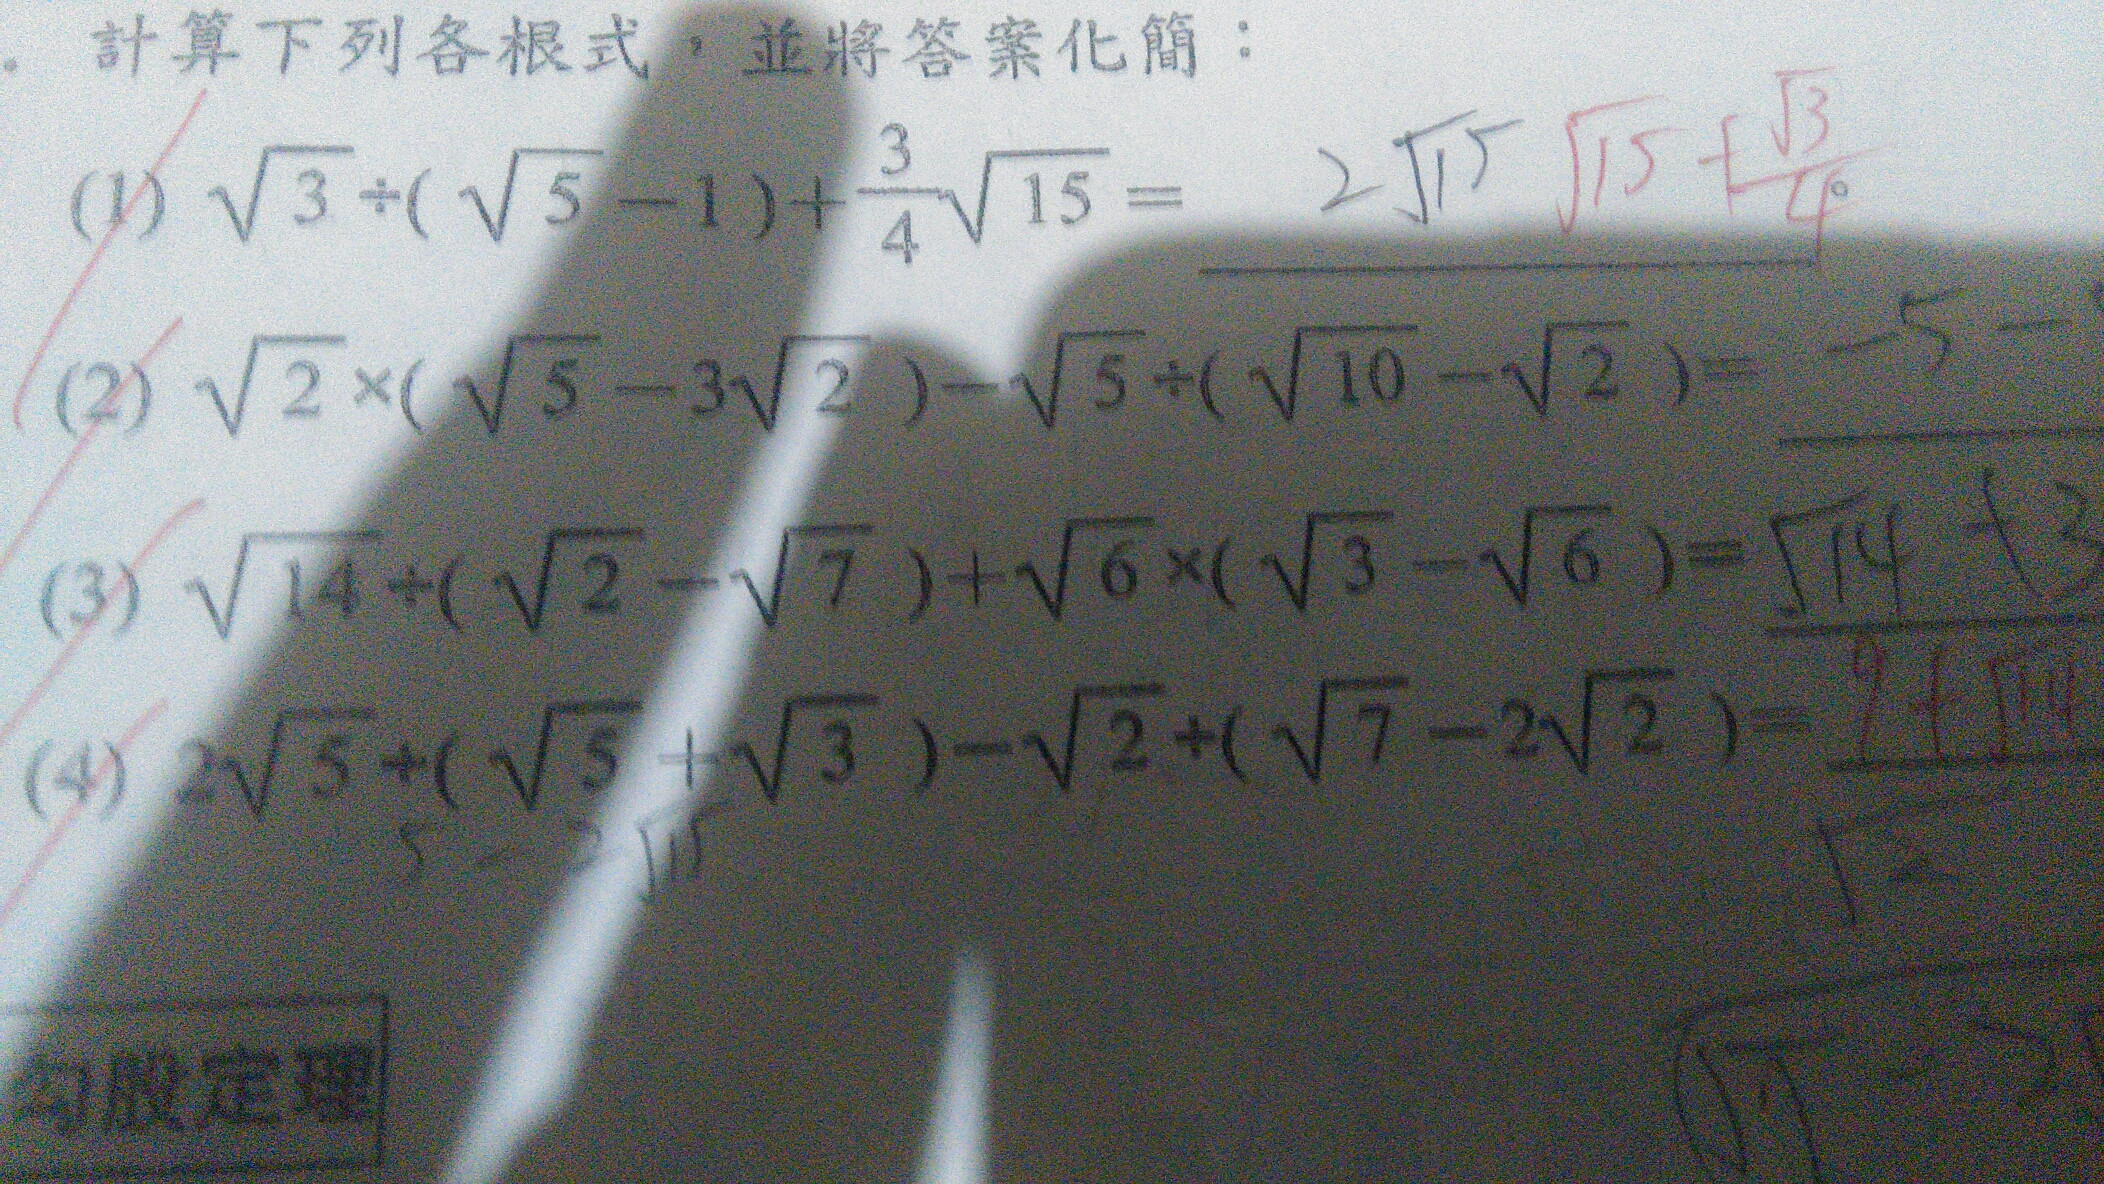 計算下列各根式，並將答案化簡：
(1) √3÷(√5−1)+3/4√15= 2√15 √15+√3/4。
(2) √2×(√5−3√2)−√5÷(√10−√2)= −5−
(3) √14÷(√2−√7)+√6×(√3−√6)= √14+3
(4) 2√5÷(√5+√3)−√2÷(√7−2√2)= 9+√14
5−2√15
勾股定理